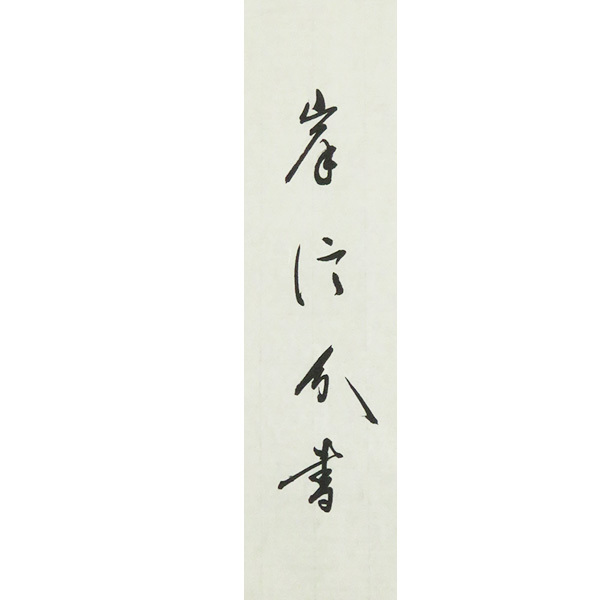 岸信介書